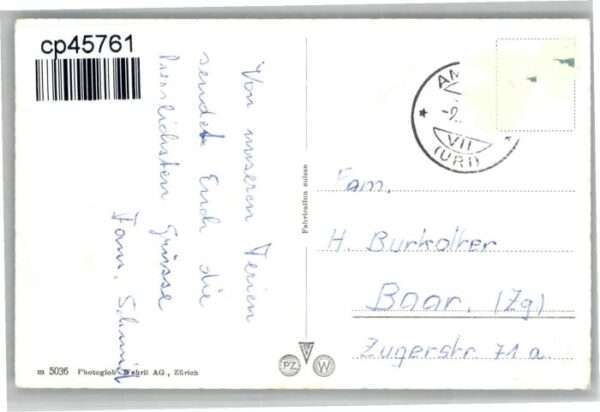 cp45761
Von unseren Ferien
sendet Euch die
herzlichsten Grüsse
Fam. Schmid
Fabrication suisse
VII
(URI)
Fam.
H. Burkolter
Baar. (Zg)
Zugerstr 71 a.
m 5036 Photoglob-Wehrli AG., Zürich
PZ W